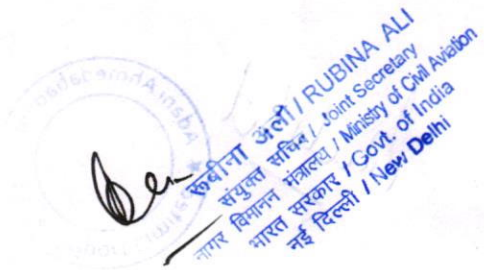 रूबीना अली / RUBINA ALI
संयुक्त सचिव / Joint Secretary
नागर विमानन मंत्रालय / Ministry of Civil Aviation
भारत सरकार / Govt. of India
नई दिल्ली / New Delhi
Adani Ahmedabad